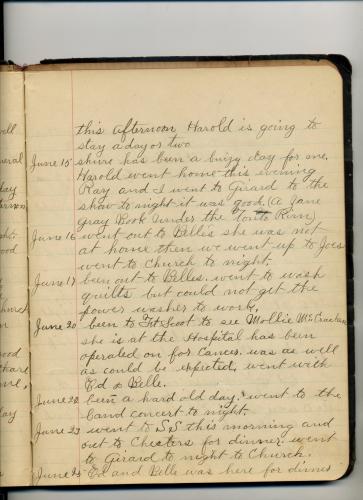 this afternoon Harold is going to
stay a day or two
June 15 shure has been a buizy day for me.
Harold went home this evening
Ray and I went to Girard to the
show to-night it was good. (A Zane
Gray Book Under the Tonto Rim)
June 16 went out to Belles she was not
at home then we went up to Joes
went to Church to night.
June 17 been out to Belles. went to wash
quilts but could not get the
power washer to work.
June 20 been to Ft Scoot to see Mollie McCracken
she is at the Hospital has been
operated on for Cancer. was as well
as could be expected, went with
Ed & Belle.
June 22 been a hard old day. went to the
band concert to night.
June 23 went to S S this morning and
out to Chesters for dinner. went
to Girard to night to Church.
June 25 Ed and Belle was here for dinner